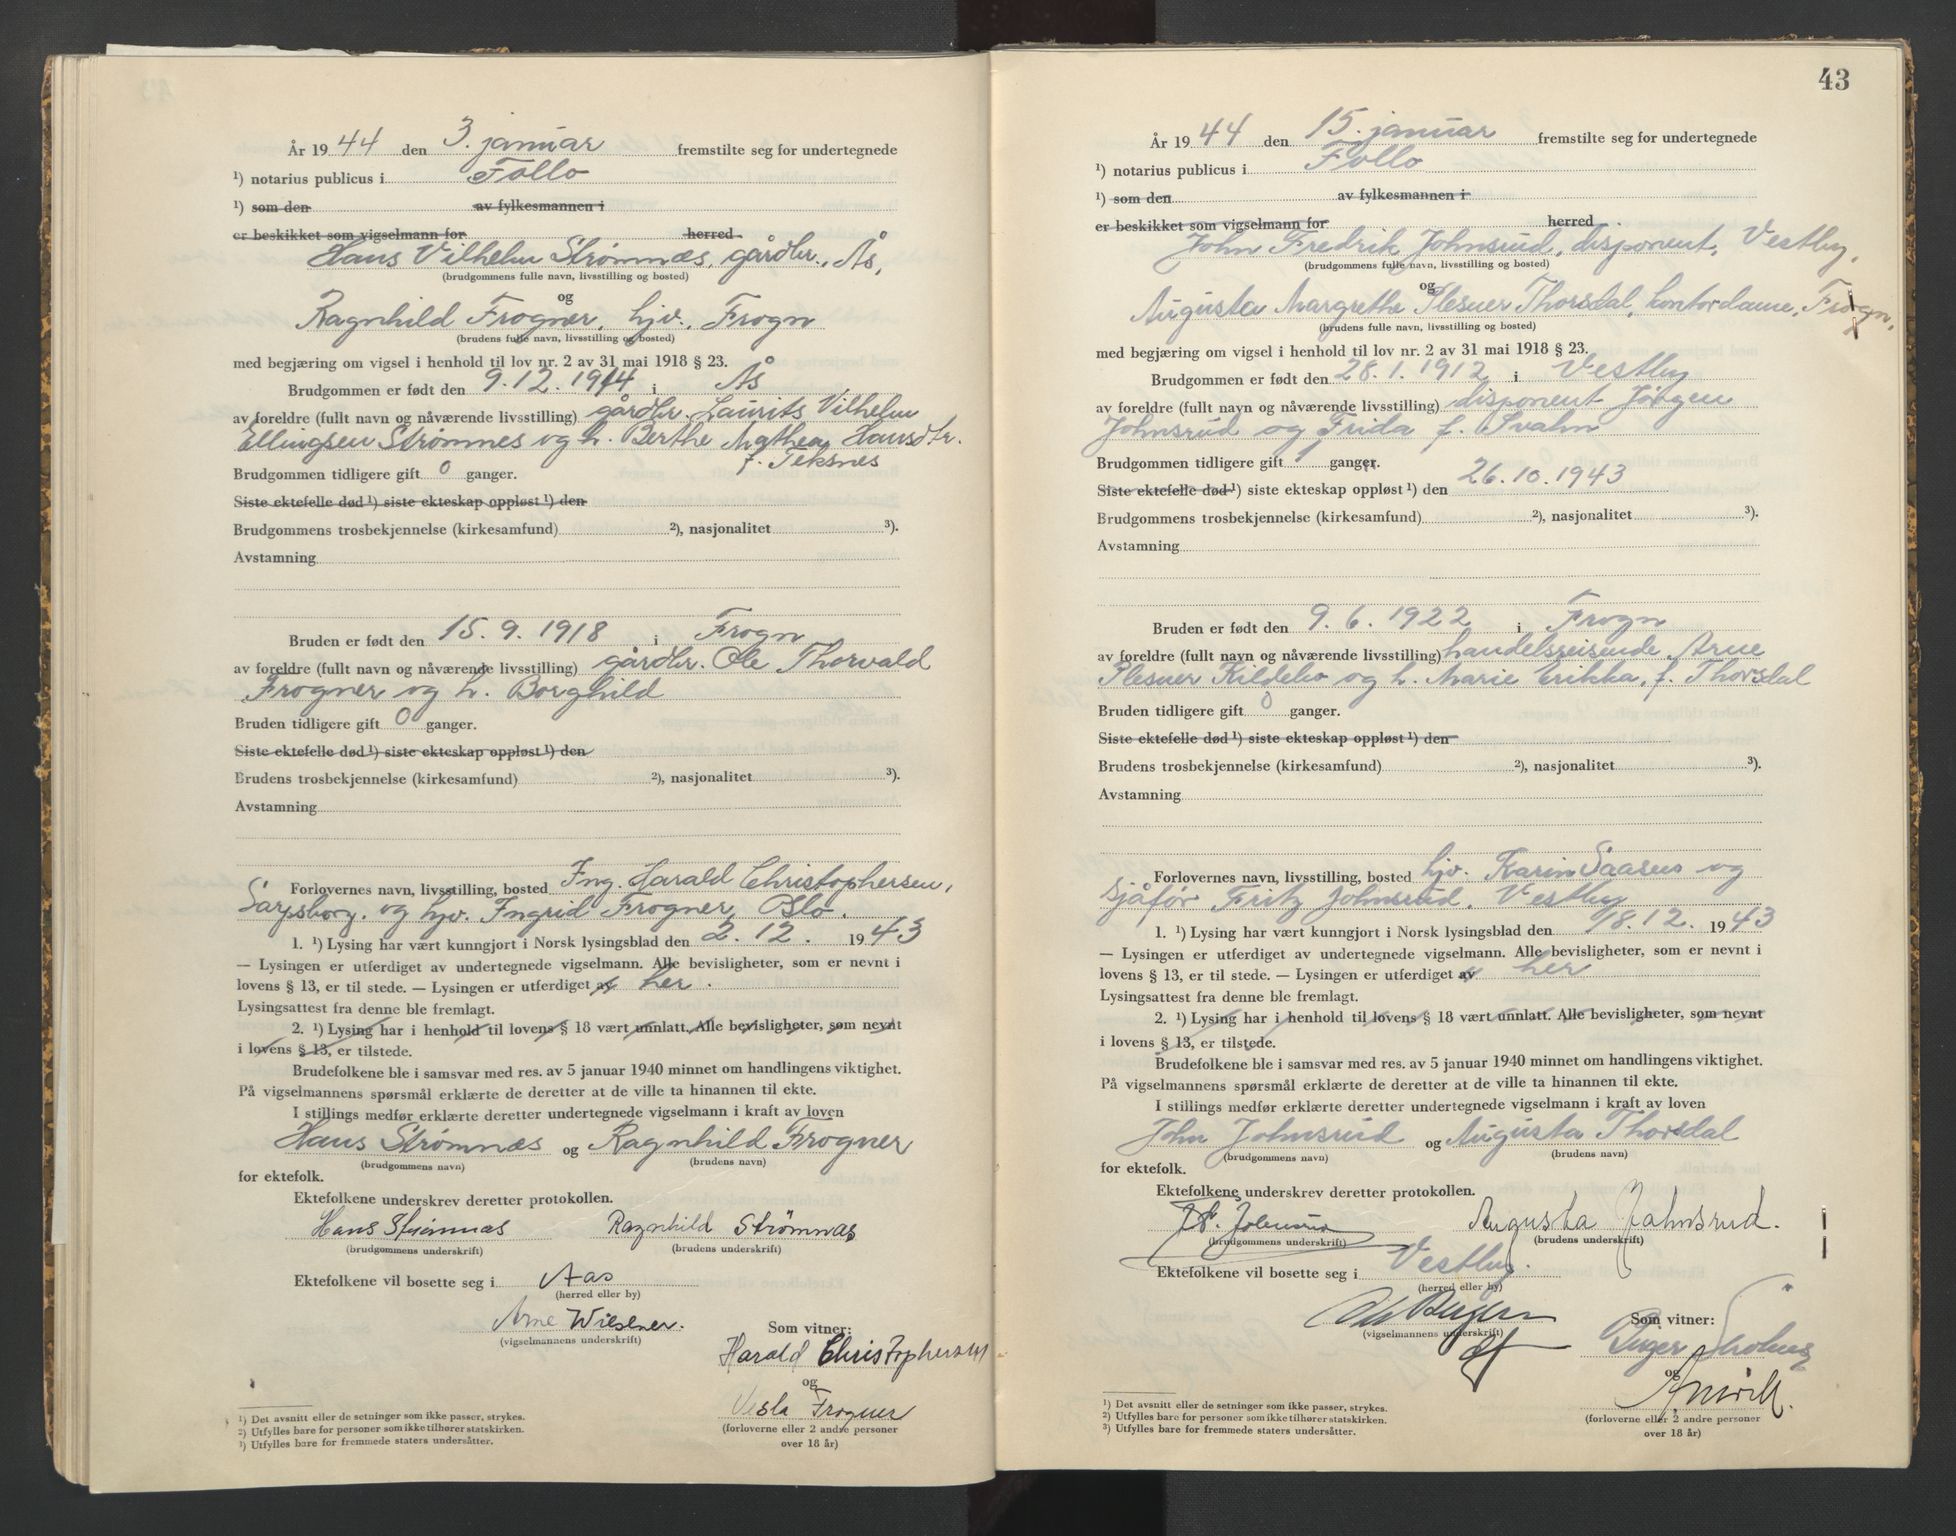 År 1944 den 3. januar fremstilte seg for undertegnede
¹) notarius publicus i Follo
¹) som den av fylkesmannen i
er beskikket som vigselmann for herred
Hans Vilhelm Strømnæs, gårdbr., Ås,
(brudgommens fulle navn, livsstilling og bosted)
og
Ragnhild Frogner, hjv., Frogn
(brudens fulle navn, livsstilling og bosted)
med begjæring om vigsel i henhold til lov nr. 2 av 31 mai 1918 § 23.
Brudgommen er født den 9.12.1914 i Ås
av foreldre (fullt navn og nåværende livsstilling) gårdbr. Laurits Vilhelm
Ellingsen Strømnes og h. Berthe Mathea Hansdtr.
f. Teksnes
Brudgommen tidligere gift 0 ganger.
Siste ektefelle død ¹) siste ekteskap oppløst ¹) den
Brudgommens trosbekjennelse (kirkesamfund) ²), nasjonalitet ³).
Avstamning
Bruden er født den 15.9.1918 i Frogn
av foreldre (fullt navn og nåværende livsstilling) gårdbr. Ole Thorvald
Frogner og h. Borghild
Bruden tidligere gift 0 ganger.
Siste ektefelle død ¹) siste ekteskap oppløst ¹) den
Brudens trosbekjennelse (kirkesamfund) ²), nasjonalitet ³).
Avstamning
Forlovernes navn, livsstilling, bosted Ing. Harald Christophersen,
Sarpsborg. og hjv. Ingrid Frogner, Oslo.
1. ¹) Lysing har vært kunngjort i Norsk lysingsblad den 2.12. 1943
— Lysingen er utferdiget av undertegnede vigselmann. Alle bevisligheter, som er nevnt i
lovens § 13, er til stede. — Lysingen er utferdiget av her.
Lysingsattest fra denne ble fremlagt.
2. ¹) Lysing har i henhold til lovens § 18 vært unnlatt. Alle bevisligheter, som nevnt
i lovens § 13, er tilstede.
Brudefolkene ble i samsvar med res. av 5 januar 1940 minnet om handlingens viktighet.
På vigselmannens spørsmål erklærte de deretter at de ville ta hinannen til ekte.
I stillings medfør erklærte deretter undertegnede vigselmann i kraft av loven
Hans Strømnæs og Ragnhild Frogner
(brudgommens navn) (brudens navn)
for ektefolk.
Ektefolkene underskrev deretter protokollen.
Hans Strømnæs Ragnhild Strömnæs
(brudgommens underskrift) (brudens underskrift)
Ektefolkene vil bosette seg i Aas
(herred eller by)
Arne Wiesener.
(vigselmannens underskrift)
Som vitner:
Harald Christophersen
og
Vesla Frogner
(forloverne eller 2 andre personer
over 18 år)
¹) Det avsnitt eller de setninger som ikke passer, strykes.
²) Utfylles bare for personer som ikke tilhører statskirken.
³) Utfylles bare for fremmede staters undersåtter.
43
År 1944 den 15. januar fremstilte seg for undertegnede
¹) notarius publicus i Follo
¹) som den av fylkesmannen i
er beskikket som vigselmann for herred
John Fredrik Johnsrud, disponent, Vestby,
(brudgommens fulle navn, livsstilling og bosted)
og
Augusta Margrethe Plesner Thorsdal, kontordame, Frogn,
(brudens fulle navn, livsstilling og bosted)
med begjæring om vigsel i henhold til lov nr. 2 av 31 mai 1918 § 23.
Brudgommen er født den 28.1.1912 i Vestby
av foreldre (fullt navn og nåværende livsstilling) disponent Jörgen
Johnsrud og Frida f. Svahn
Brudgommen tidligere gift 1 ganger.
Siste ektefelle død ¹) siste ekteskap oppløst ¹) den 26.10.1943
Brudgommens trosbekjennelse (kirkesamfund) ²), nasjonalitet ³).
Avstamning
Bruden er født den 9.6.1922 i Frogn
av foreldre (fullt navn og nåværende livsstilling) handelsreisende Arne
Plesner Kildebo og h. Marie Erikka, f. Thorsdal
Bruden tidligere gift 0 ganger.
Siste ektefelle død ¹) siste ekteskap oppløst ¹) den
Brudens trosbekjennelse (kirkesamfund) ²), nasjonalitet ³).
Avstamning
Forlovernes navn, livsstilling, bosted hjv. Karin og
sjåför Fritz Johnsrud, Vestby
1. ¹) Lysing har vært kunngjort i Norsk lysingsblad den 18.12. 1943
— Lysingen er utferdiget av undertegnede vigselmann. Alle bevisligheter, som er nevnt i
lovens § 13, er til stede. — Lysingen er utferdiget av her
Lysingsattest fra denne ble fremlagt.
2. ¹) Lysing har i henhold til lovens § 18 vært unnlatt. Alle bevisligheter, som nevnt
i lovens § 13, er tilstede.
Brudefolkene ble i samsvar med res. av 5 januar 1940 minnet om handlingens viktighet.
På vigselmannens spørsmål erklærte de deretter at de ville ta hinannen til ekte.
I stillings medfør erklærte deretter undertegnede vigselmann i kraft av loven
John Johnsrud og Augusta Thorsdal
(brudgommens navn) (brudens navn)
for ektefolk.
Ektefolkene underskrev deretter protokollen.
J. F. Johnsrud Augusta Johnsrud.
(brudgommens underskrift) (brudens underskrift)
Ektefolkene vil bosette seg i Vestby.
(herred eller by)
(vigselmannens underskrift)
Som vitner:
og
(forloverne eller 2 andre personer
over 18 år)
¹) Det avsnitt eller de setninger som ikke passer, strykes.
²) Utfylles bare for personer som ikke tilhører statskirken.
³) Utfylles bare for fremmede staters undersåtter.